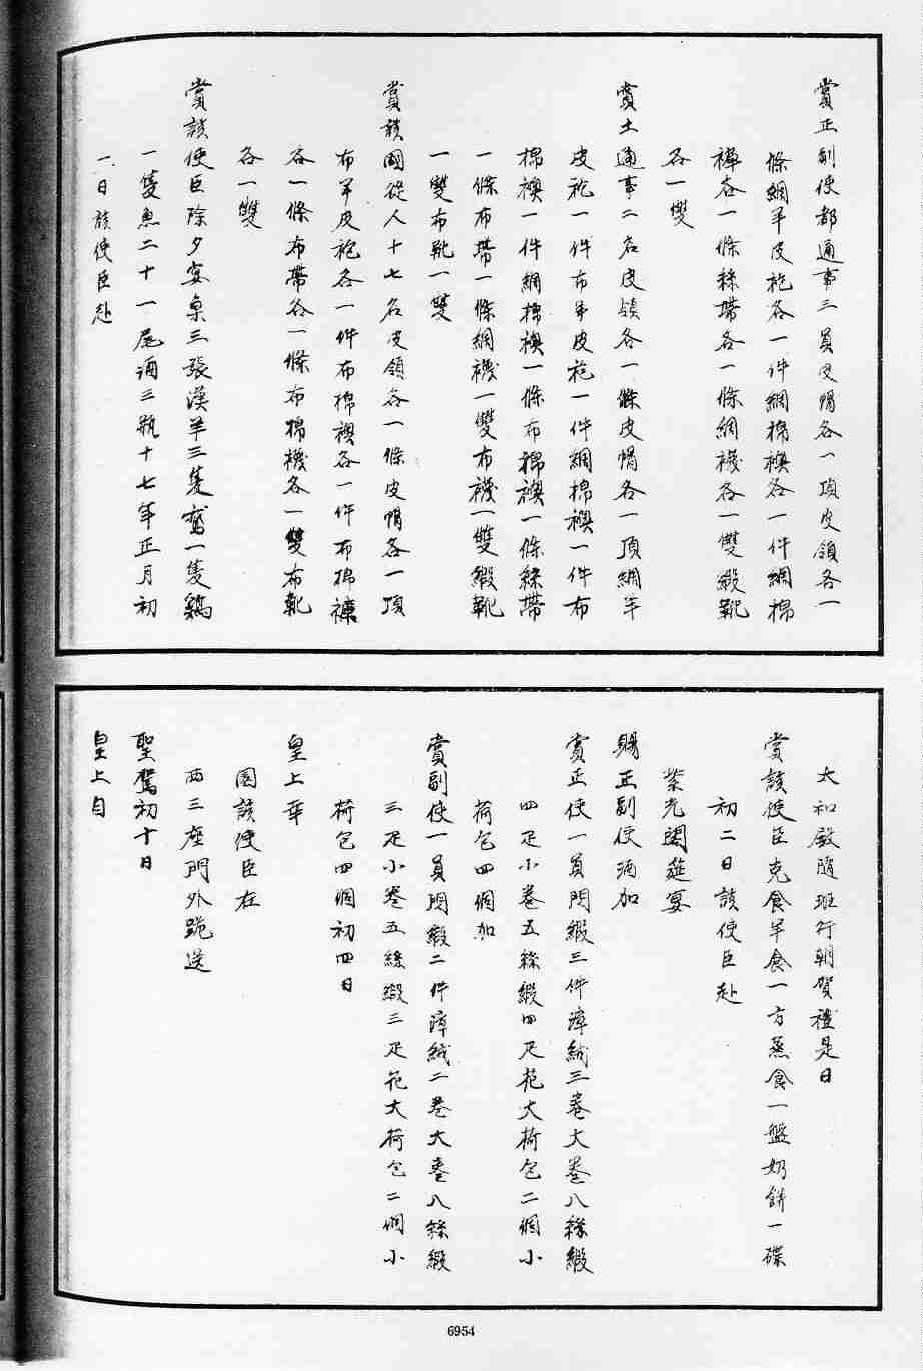 賞正副使都通事三員皮帽各一頂皮領各一
條綢羊皮袍各一件綢棉襖各一件綢棉
褲各一條絲帶各一條綢襪各一雙緞靴
各一雙
賞土通事二名皮領各一條皮帽各一頂綢羊
皮袍一件布羊皮袍一件綢棉襖一件布
棉襖一件綢棉襖一條布棉襖一條絲帶
一條布帶一條綢襪一雙布襪一雙緞靴
一雙布靴一雙
賞該國從人十七名皮領各一條皮帽各一頂
布羊皮袍各一件布棉襖各一件布棉褲
各一條布帶各一條布棉襪各一雙布靴
各一雙
賞該使臣除夕宴桌三張漢羊三隻鵞一隻鷄
一隻魚二十一尾酒三瓶十七年正月初
一日該使臣赴
太和殿隨班行朝賀禮是日
賞該使臣克食羊食一方蒸食一盤奶餅一碟
初二日該使臣赴
紫光閣筵宴
賜正副使酒加
賞正使一員閃緞三件漳絨三卷大卷八絲緞
四疋小卷五絲緞四疋花大荷包二個小
荷包四個加
賞副使一員閃緞二件漳絨二卷大卷八絲緞
三疋小卷五絲緞三疋花大荷包二個小
荷包四個初四日
皇上幸
園該使臣在
西三座門外跪送
聖駕初十日
皇上自
6954